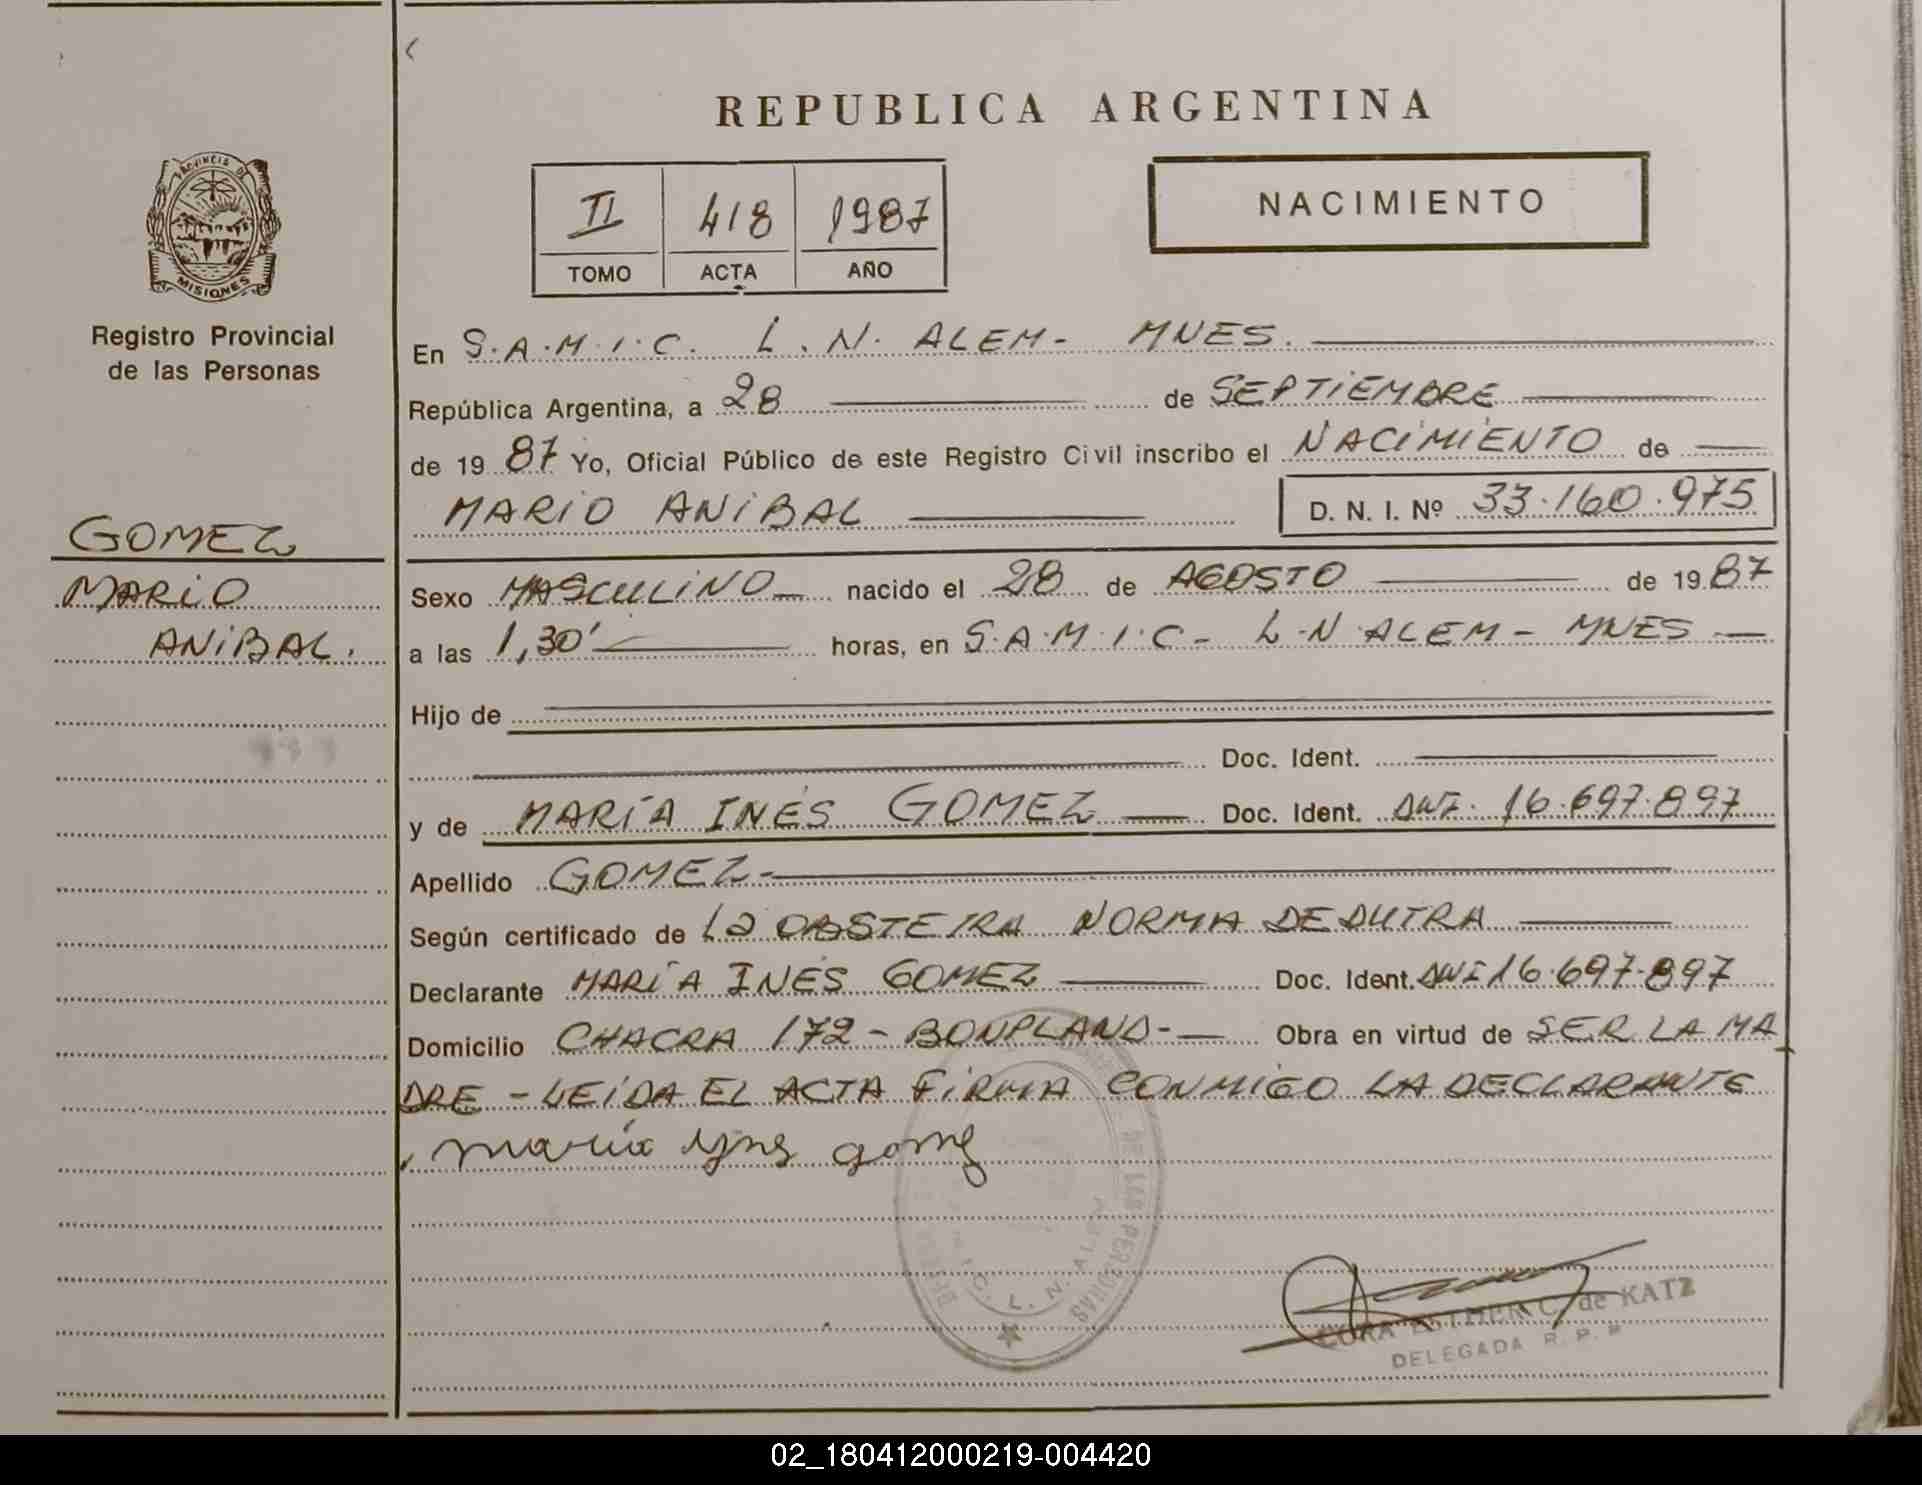 REPUBLICA ARGENTINA
PROVINCIA DE
MISIONES
Registro Provincial
de las Personas
II 418 1987
TOMO ACTA AÑO
NACIMIENTO
En S.A.M.I.C. L.N. ALEM- MNES.
República Argentina, a 28 de SEPTIEMBRE
de 1987 Yo, Oficial Público de este Registro Civil inscribo el NACIMIENTO de
MARIO ANIBAL D. N. I. Nº 33.160.975
GOMEZ
MARIO
ANIBAL.
Sexo MASCULINO nacido el 28 de AGOSTO de 1987
a las 1,30' horas, en S.A.M.I.C- L.N ALEM - MNES
Hijo de
Doc. Ident.
y de MARÍA INÉS GOMEZ Doc. Ident. DNI. 16.697.897
Apellido GOMEZ-
Según certificado de LA OBSTETRA NORMA DEDUTRA
Declarante MARÍA INÉS GOMEZ Doc. Ident. DNI 16.697.897
Domicilio CHACRA 172 - BONPLAND- Obra en virtud de SER LA MA
DRE - LEÍDA EL ACTA FIRMA CONMIGO LA DECLARANTE
maria ynes gomez
DE LAS PERSONAS
L. N. ALEM
CORA ESTHER C. de KATZ
DELEGADA R. P. P
02_180412000219-004420